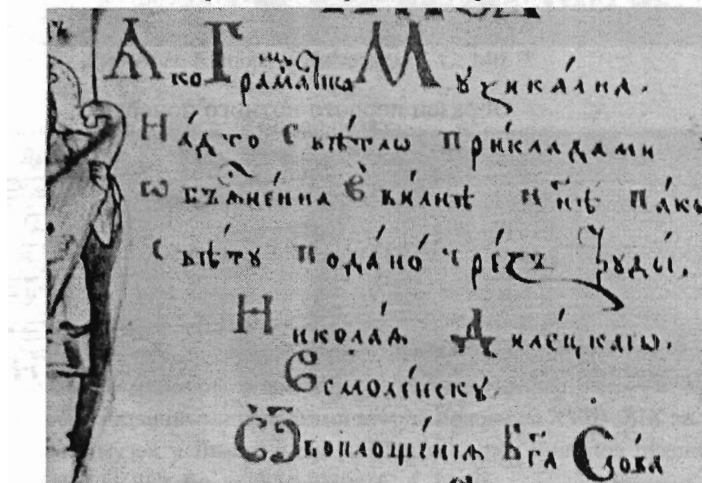 Ако Грама́тика Мꙋзика́лна.
На́дто свѣ́тлѡ при́кладами
ѡбъѧсне́нна в ви́лнѣ нн҃ѣ па́кы
свѣ́тꙋ пода́но чре́зъ Трꙋды́.
Никола́ѧ Диле́цкагѡ.
Всмоле́нскꙋ.
Ѿ воплоще́нїѧ Бг҃а Сло́ва